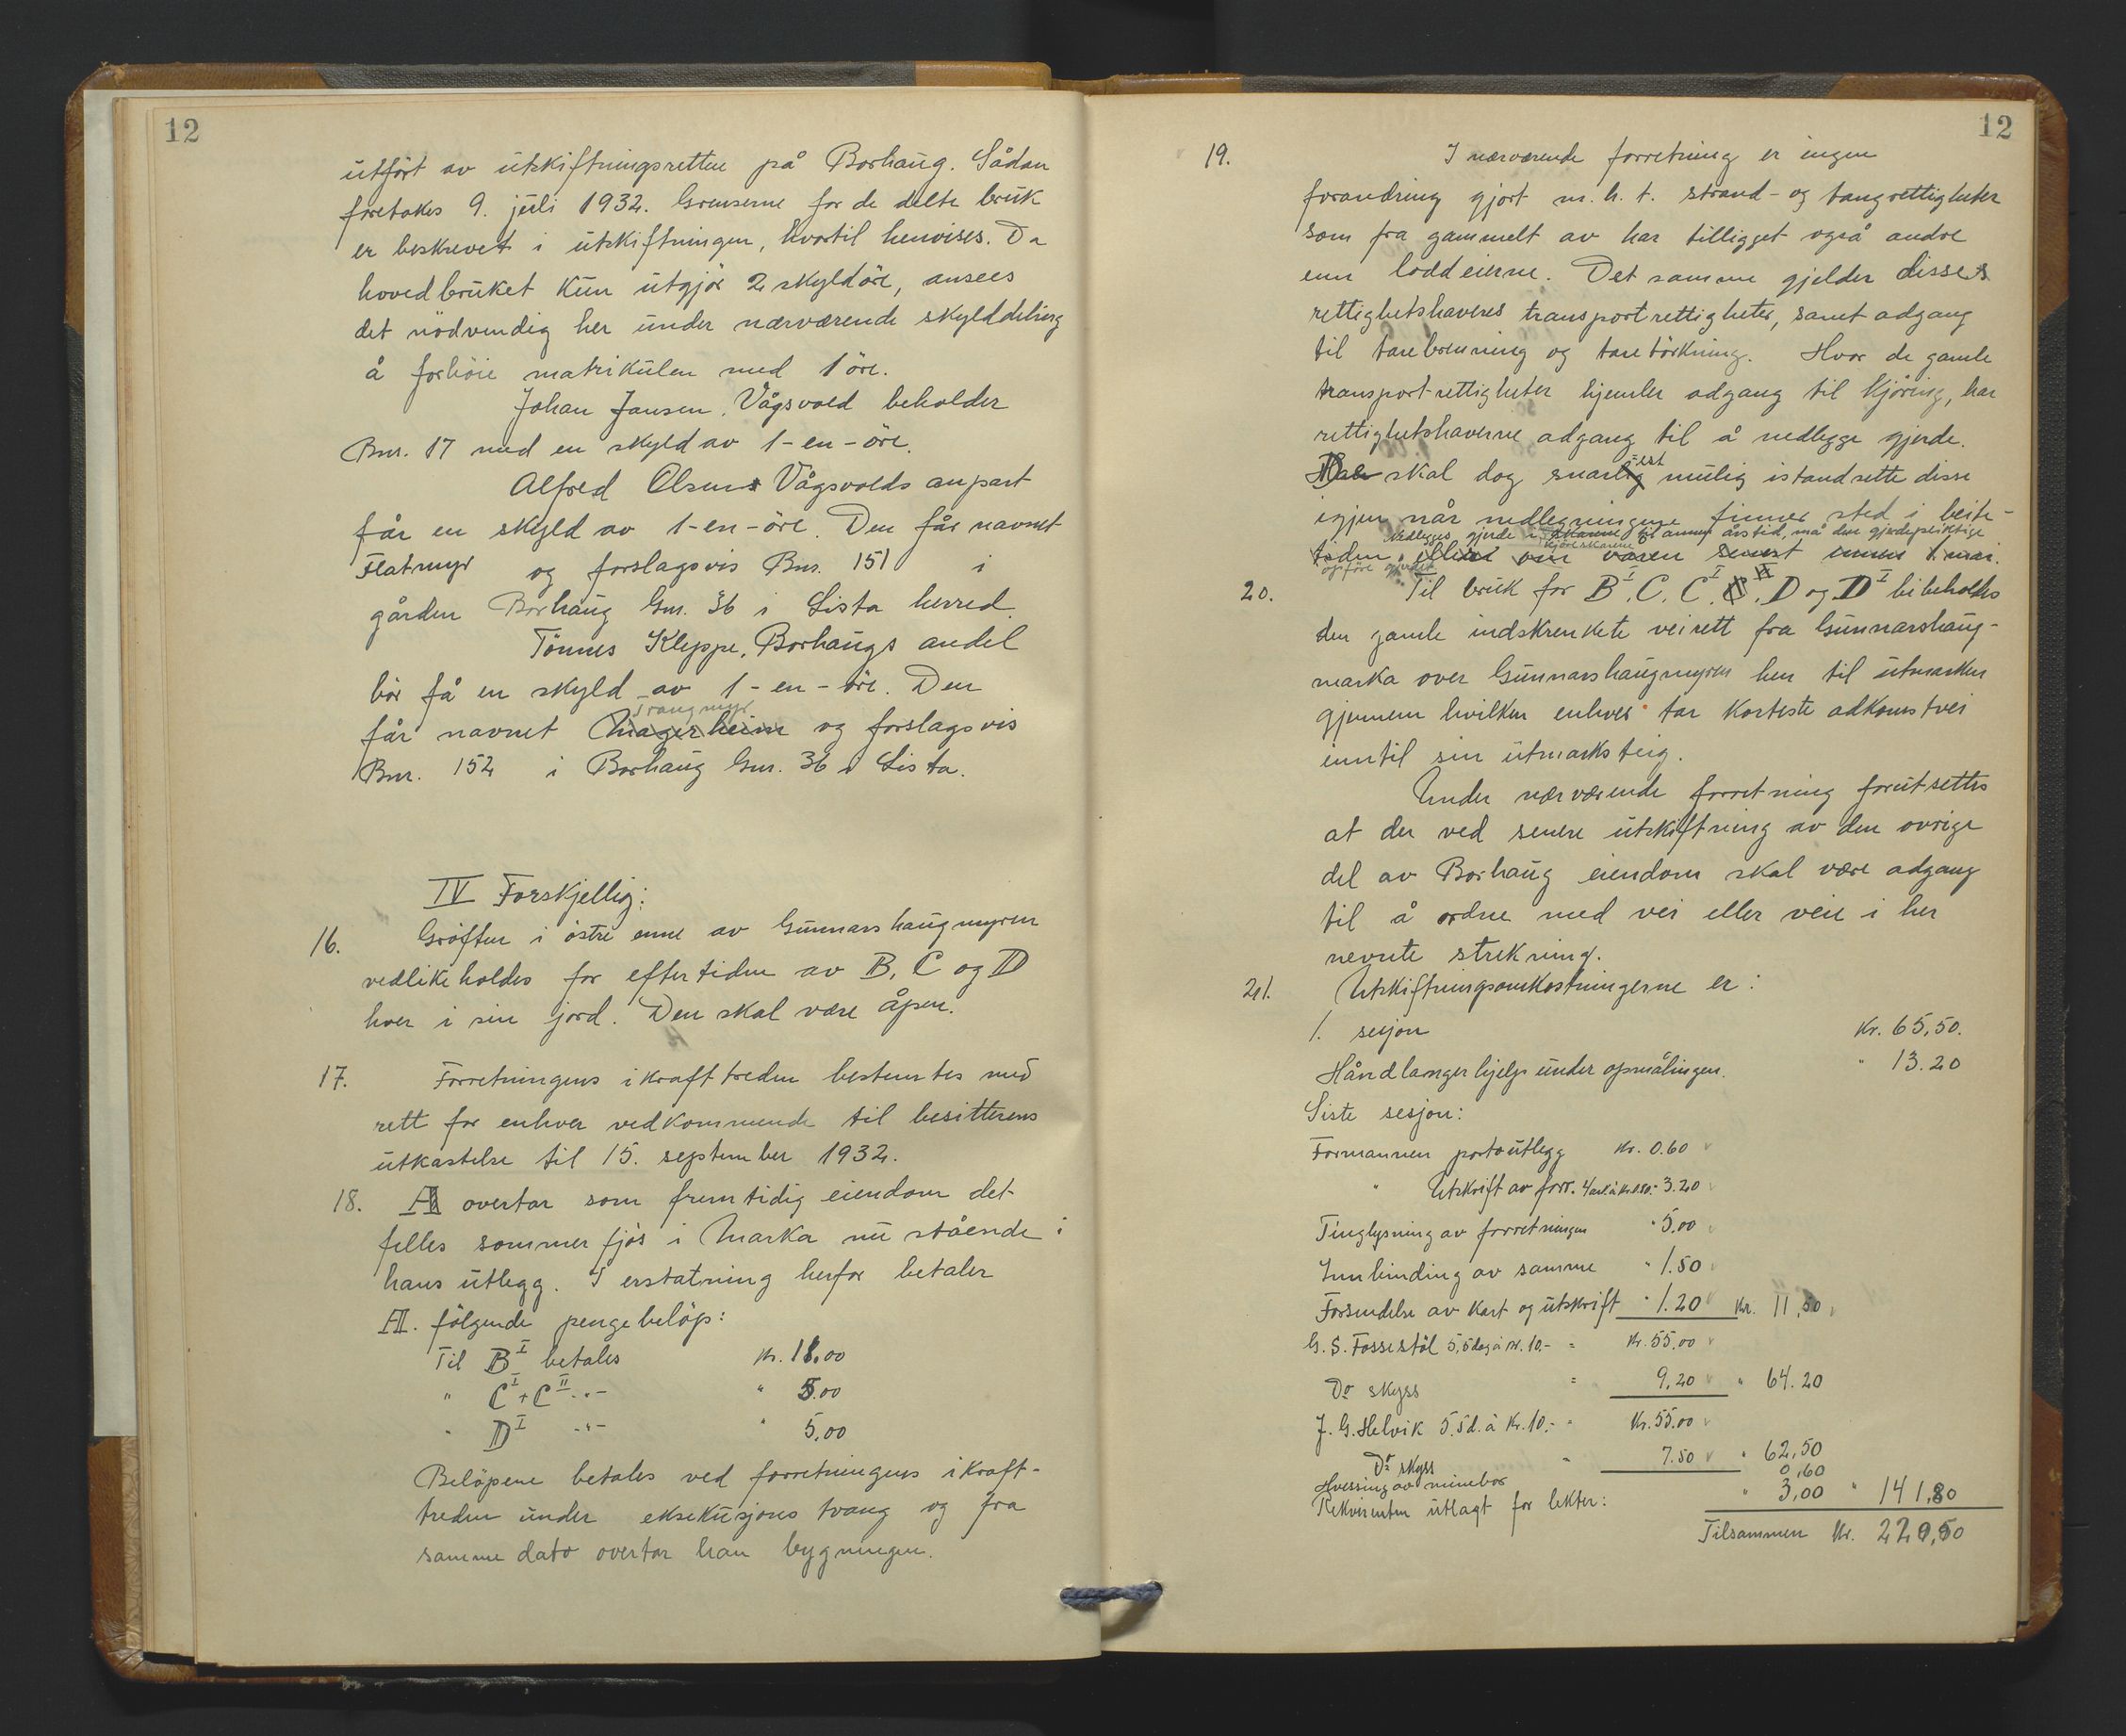 12
utfört av utskiftningsretten på Borhaug. Sådan
foretokes 9. juli 1932. Grenserne for de delte bruk
er beskrevet i utskiftningen, hvortil henvises. Da
hovedbruket kun utgjör 2 skyldöre, ansees
det nödvendig her under nærværende skylddeling
å forhöie matrikulen med 1 öre.
Johan Jansen, Vågsvold beholder
Bnr. 17 med en skyld av 1-en-öre.
Alfred Olsens Vågsvolds anpart
får en skyld av 1-en-öre. Den får navnet
Flatmyr og forslagsvis Bnr. 151 i
gården Borhaug Gnr. 36 i Lista herred.
Tönnes Kleppe, Borhaugs andel
bör få en skyld av 1-en-öre. Den
Trangmyr
får navnet Magerheim og forslagsvis
Bnr. 152 i Borhaug Gnr. 36 i Lista.
IV Forskjellig:
16. Gröften i östre enne av Gunnarshaugmyren
vedlikeholdes for eftertiden av B, C og D
hver i sin jord. Den skal være åpen.
17. Forretningens ikrafttreden bestemtes med
rett for enhver vedkommende til besitterens
utkastelse til 15. september 1932.
18. A overtar som fremtidig eiendom det
felles sommerfjös i Marka nu stående i
hans utlegg. I erstatning herfor betaler
A. fölgende pengebelöp:
Til B I betales kr. 18.00
" C I + C II -"- " 5.00
" D I -"- " 5,00
Belöpene betales ved forretningens ikraft-
treden under eksekusjons tvang og fra
samme dato overtar han bygningen.
12
19. I nærværende forretning er ingen
forandring gjort m.h.t. strand- og tangrettigheter
som fra gammelt av har tilligget også andre
enn loddeierne. Det samme gjelder disses
rettighetshaveres transportrettigheter, samt adgang
til tarebrenning og taretörkning. Hvor de gamle
transportrettigheter hjemler adgang til kjöring, har
rettighetshaverne adgang til å nedlegge gjerde.
-est
De skal dog snarlig mulig istandsette disse
igjen når nedlegningene finner sted i beite-
nedlegges gjerde i til annen årstid, må den gjerdepliktige
kjöreskarene
tiden. våren senest innen 1 mai.
opföre gjerdet
20. Til bruk for B I, C, C I, C II, D og D I bibeholdes
den gamle indskrenkete veirett fra Gunnarshaug-
marka over Gunnarshaugmyren hen til utmarken
gjennem hvilken enhver tar korteste adkomstvei
inntil sin utmarksteig.
Under nærværende forretning forutsettes
at der ved senere utskiftning av den övrige
del av Borhaug eiendom skal være adgang
til å ordne med vei eller veie i her
nevnte strekning.
21. Utskiftningsomkostningerne er:
1. sesjon kr. 65,50.
Håndlangerhjelp under opmålingen. " 13.20
Siste sesjon:
Formannen portoutlegg kr. 0.60
" Utskrift av forr. 4 ark à kr. 0.80.- 3.20
Tinglysning av forretningen " 5.00
Innbinding av samme " 1.50
Forsendelse av kart og utskrift " 1.20 kr. 11,50
G. S. Fossestöl 5,5 dag à kr. 10.- = kr. 55.00
Do skyss = 9,20 " 64.20
J. G. Helvik 5.5 d. à kr. 10.- = kr. 55.00
Do skyss = 7.50 " 62,50
Hvessing av minebor 0,60
Rekvirenten utlagt for lekter: " 3,00 " 141,80
Tilsammen kr. 220,50